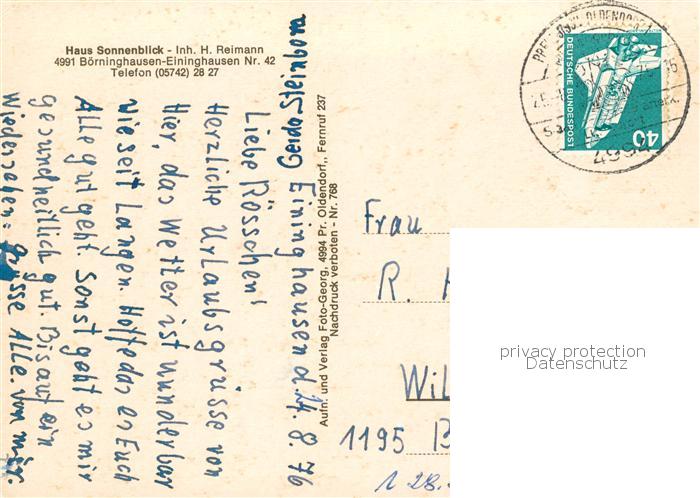 Haus Sonnenblick - Inh. H. Reimann
4991 Börninghausen-Eininghausen Nr. 42
Telefon (05742) 28 27
Gerda Steinborn
Eininghausen d. 24. 8. 76
Liebe Rösschen!
Herzliche Urlaubsgrüsse von
Hier, das Wetter ist wunderbar
wie seit Langen. Hoffe das es Euch
Alle gut geht. Sonst geht es mir
gesundheitlich gut. Bis auf ein
Wiedersehen: Grüsse Alle. Von mir.
Aufn. und Verlag Foto-Georg, 4994 Pr. Oldendorf,, Fernruf 237
Nachdruck verboten - Nr. 768
DEUTSCHE BUNDESPOST
40
4994
Frau
R.
Wil
1195 B
1 28.
privacy protection
Datenschutz